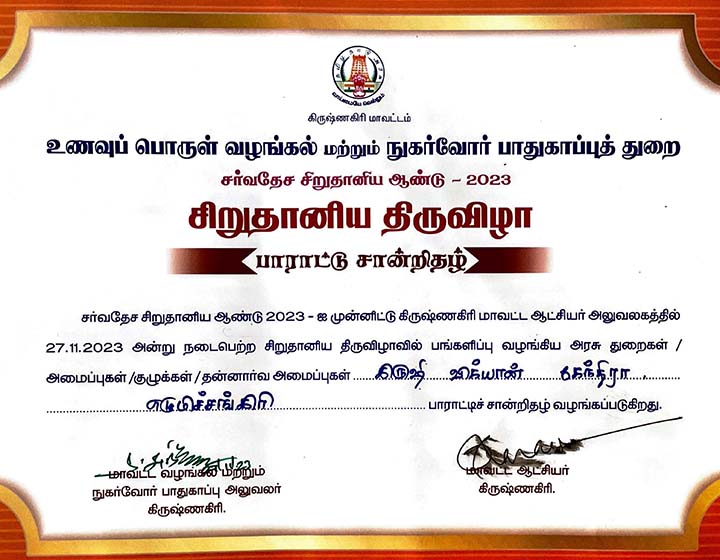 தமிழ்நாடு அரசு
வாய்மையே வெல்லும்
கிருஷ்ணகிரி மாவட்டம்
உணவுப் பொருள் வழங்கல் மற்றும் நுகர்வோர் பாதுகாப்புத் துறை
சர்வதேச சிறுதானிய ஆண்டு – 2023
சிறுதானிய திருவிழா
பாராட்டு சான்றிதழ்
சர்வதேச சிறுதானிய ஆண்டு 2023 - ஐ முன்னிட்டு கிருஷ்ணகிரி மாவட்ட ஆட்சியர் அலுவலகத்தில்
27.11.2023 அன்று நடைபெற்ற சிறுதானிய திருவிழாவில் பங்களிப்பு வழங்கிய அரசு துறைகள் /
அமைப்புகள் /குழுக்கள் / தன்னார்வ அமைப்புகள் கிருஷி விக்யான் கேந்திரா
எலுமிச்சங்கிரி பாராட்டிச் சான்றிதழ் வழங்கப்படுகிறது.
மாவட்ட வழங்கல் மற்றும்
நுகர்வோர் பாதுகாப்பு அலுவலர்
கிருஷ்ணகிரி.
மாவட்ட ஆட்சியர்
கிருஷ்ணகிரி.